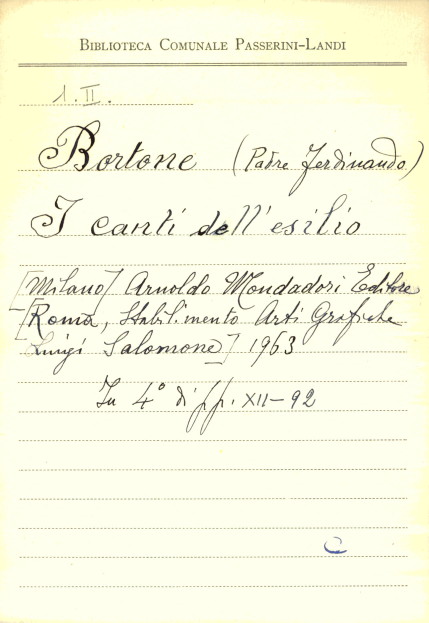 BIBLIOTECA COMUNALE PASSERINI-LANDI
1. II.
Bortone (Padre Ferdinando)
I canti dell'esilio
[Milano] Arnoldo Mondadori Editore
[Roma, Stabilimento Arti Grafiche
Luigi Salomone] 1963
In 4° di pp. XII-92
C